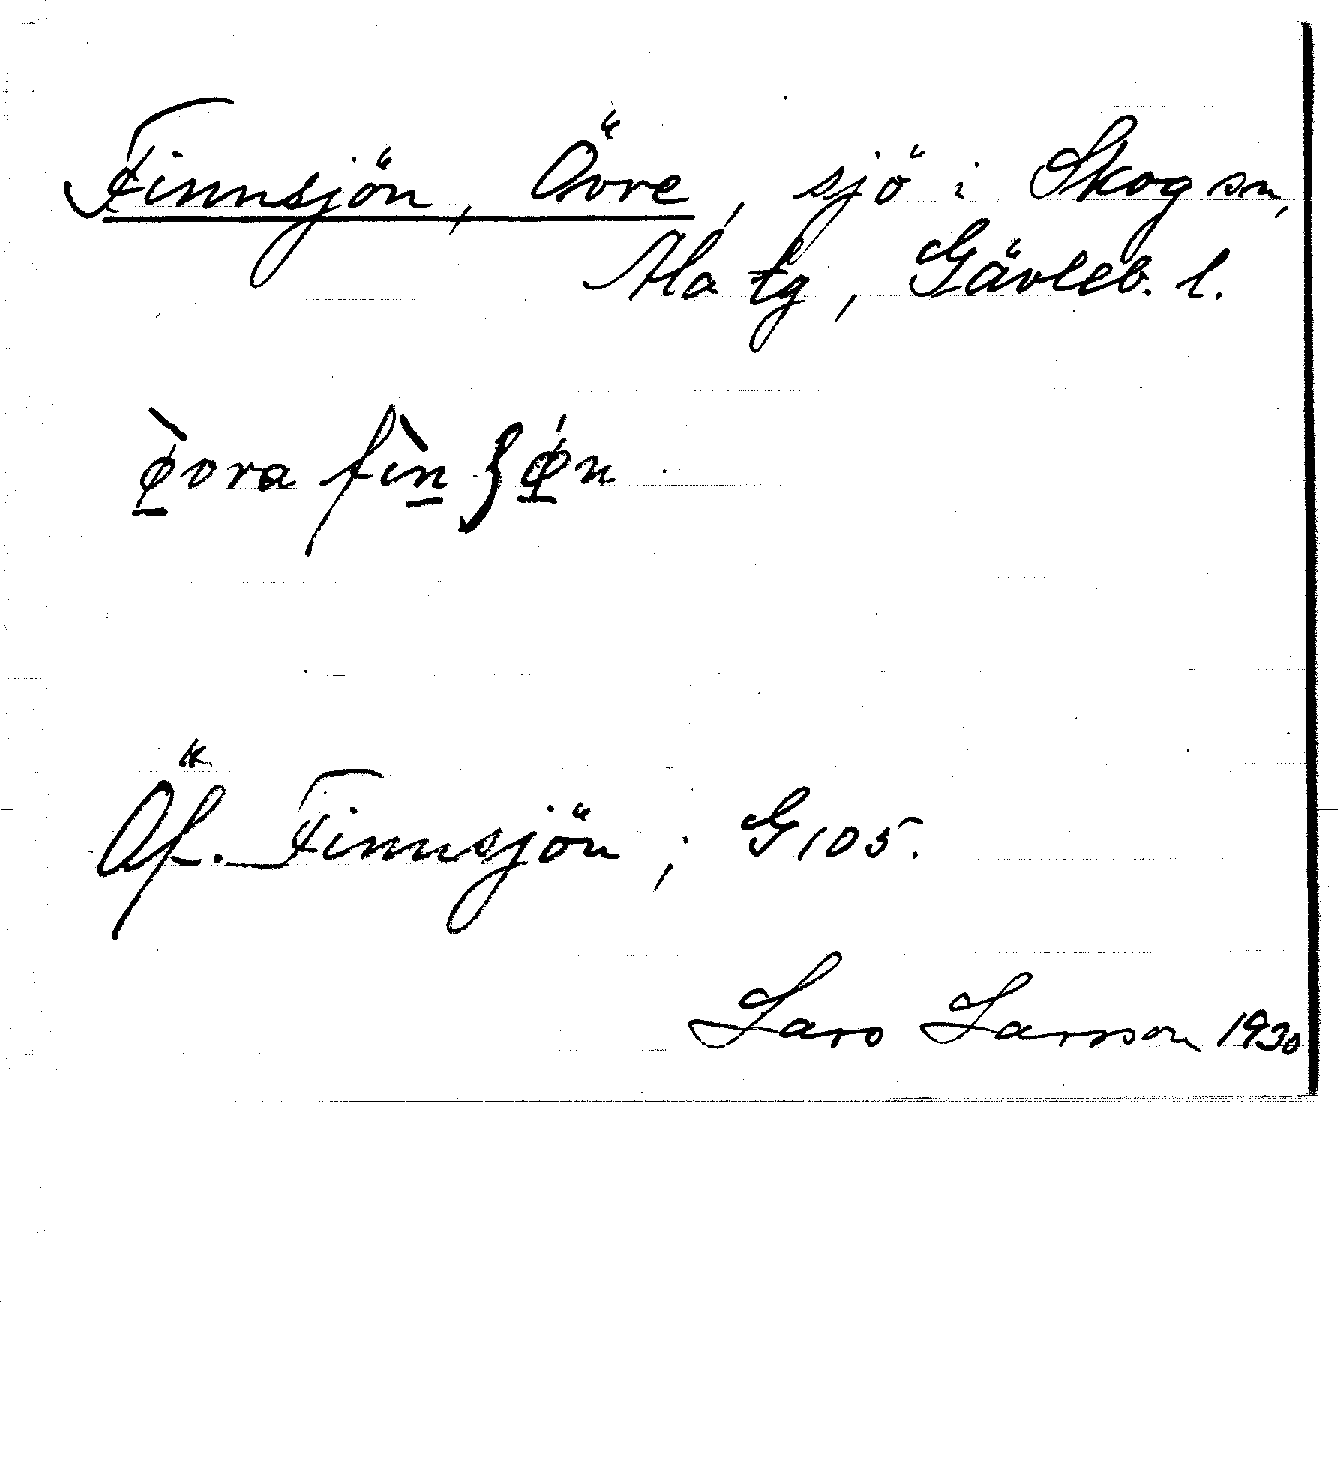 Finnsjön, Övre, sjö i Skog sn,
Ala tg, Gävleb. l.
Öf. Finnsjön ; G 105.
Lars Larsson 1930